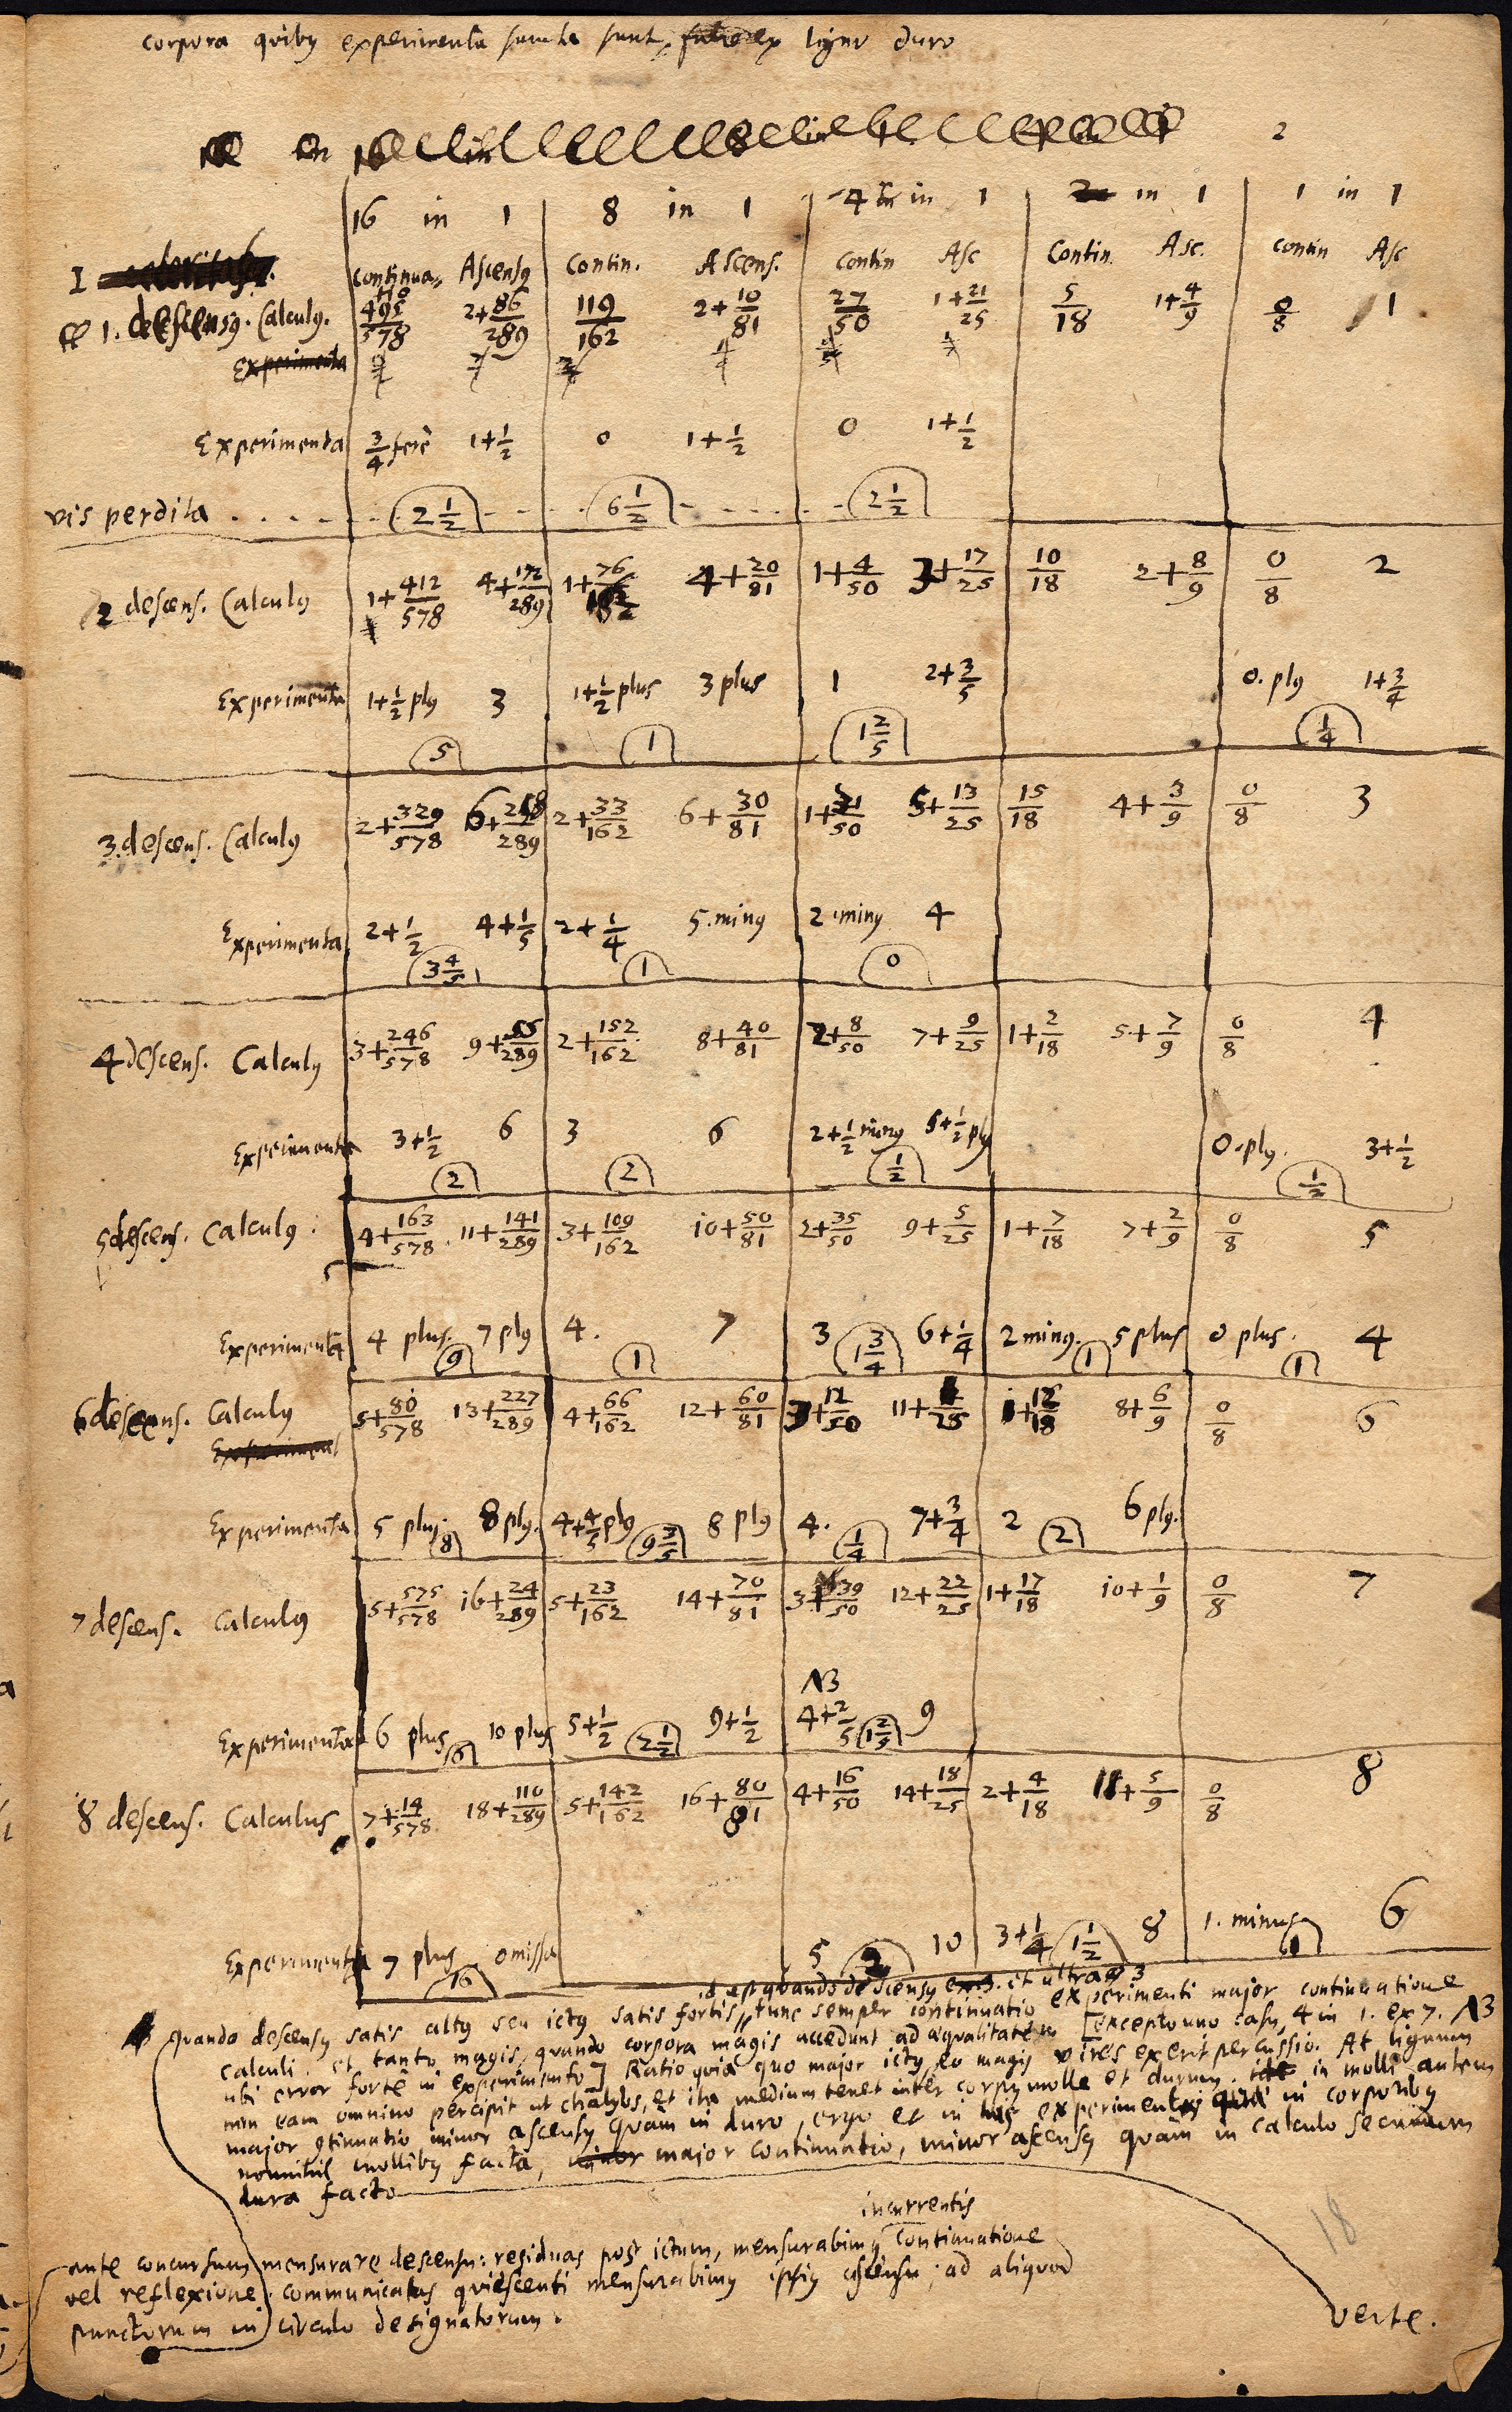 corpora quibus experimenta sumta sunt, ex ligno duro
2
16 in 1 8 in 1 4 in 1 in 1 1 in 1
I
continua. Ascensus Contin. Ascens. Contin Asc Contin. Asc. contin Asc
1. descensus. Calculus. 495/578 2+86/289 119/162 2+10/81 27/50 1+21/25 5/18 1+4/9 0/8 1
Experimenta
Experimenta 3/4 ferè 1+1/2 0 1+1/2 0 1+1/2
vis perdita . . . . . 2 1/2 . . . . 6 1/2 . . . . . 2 1/2
2 descens. Calculus 1+412/578 4+172/289 1+76/162 4+20/81 1+4/50 3+17/25 10/18 2+8/9 0/8 2
Experimenta 1+1/2 plus 3 1+1/2 plus 3 plus 1 2+3/5 0. plus 1+3/4
5 1 1 2/5 1/4
3. descens. Calculus 2+329/578 6+258/289 2+33/162 6+30/81 1+31/50 5+13/25 15/18 4+3/9 0/8 3
Experimenta 2+1/2 4+1/5 2+1/4 5. minus 2. minus 4
3 4/5 1 0
4 descens. Calculus 3+246/578 9+55/289 2+152/162 8+40/81 2+8/50 7+9/25 1+2/18 5+7/9 0/8 4
Experimenta 3+1/2 6 3 6 2+1/2 minus 5+1/2 plus 0. plus. 3+1/2
2 2 1/2 1/2
5 descens. Calculus. 4+163/578 11+141/289 3+109/162 10+50/81 2+35/50 9+5/25 1+7/18 7+2/9 0/8 5
Experimenta 4 plus. 9 7 plus 4. 1 7 3 1 3/4 6+1/4 2 minus. 1 5 plus 0 plus. 1 4
6 descens. Calculus 5+80/578 13+227/289 4+66/162 12+60/81 3+12/50 11+1/25 1+12/18 8+6/9 0/8 6
Experiment
Experimenta 5 plus. 8 8 plus. 4+4/5 plus 9 3/5 8 plus 4. 1/4 7+3/4 2 2 6 plus.
7 descens. Calculus 5+575/578 16+24/289 5+23/162 14+70/81 3+39/50 12+22/25 1+17/18 10+1/9 0/8 7
NB
Experimenta 6 plus 6 10 plus 5+1/2 2 1/2 9+1/2 4+2/5 1 2/5 9
8 descens. Calculus 7+14/578 18+110/289 5+142/162 16+80/81 4+16/50 14+18/25 2+4/18 11+5/9 0/8 8
Experimenta 7 plus 16 omissa 5 2 10 3+1/4 1 1/2 8 1. minus 1 6
id est quando descensus et ultra 3
quando descensus satis altus seu ictus satis fortis, tunc semper continuatio experimenti major continuatione
calculi. et tanto magis, quando corpora magis accedunt ad aequalitatem [excepto uno casu, 4 in 1. ex 7. NB
ubi error forte in experimento] Ratio quia quo major ictus, eo magis vires exerit percussio. At lignum
non eam omnino percipit ut chalybs, et ita medium tenet inter corpus molle et durum. in molli autem
major continuatio minor ascensus quam in duro, ergo et in his experimentis in corporibus
nonnihil mollibus facta, major continuatio, minor ascensus quàm in calculo secundum
dura facto
incurrentis
ante concursum mensurare descensu: residuas post ictum, mensurabimus continuatione
vel reflexione communicatas quiescenti mensurabimus ipsius ascensu; ad aliquod
punctorum in circulo designatorum.
18
verte.